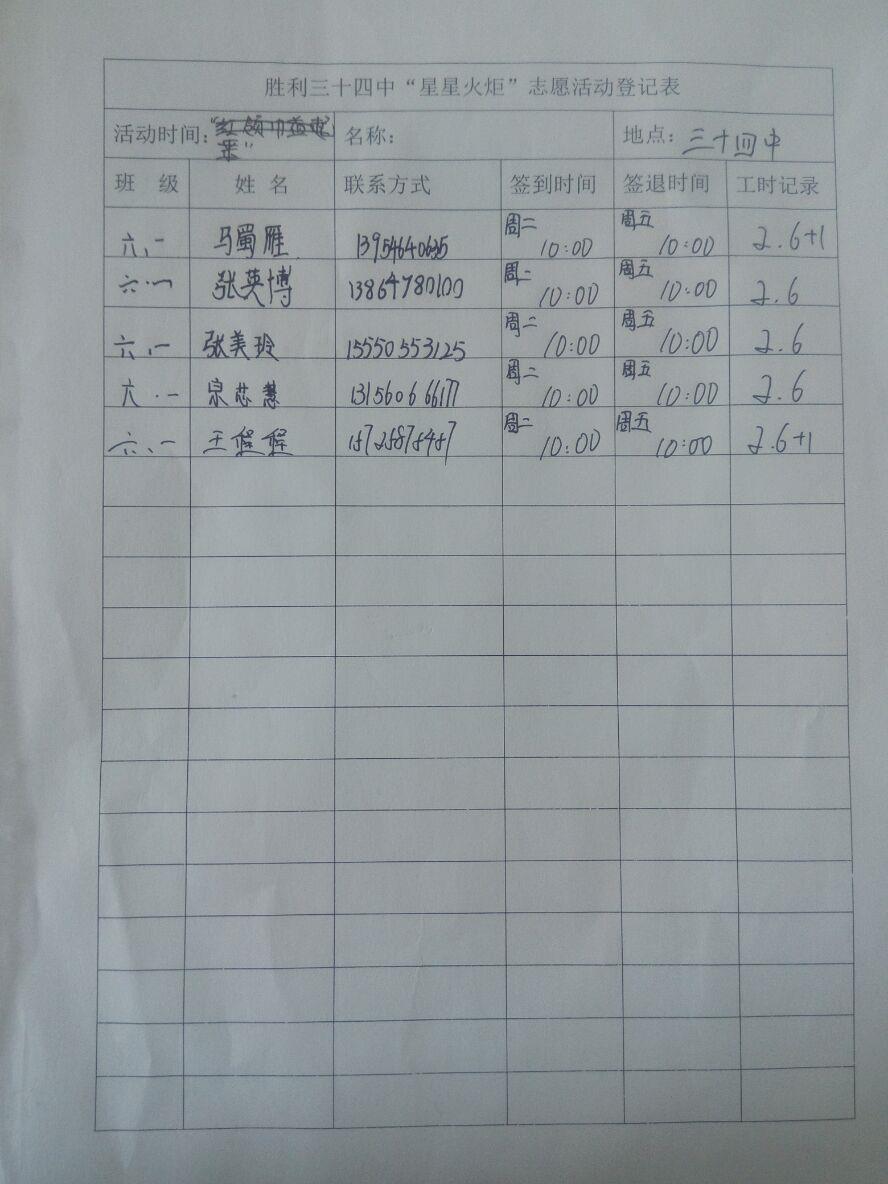 胜利三十四中“星星火炬”志愿活动登记表
活动时间： 名称： 地点：三十四中
班 级 姓 名 联系方式 签到时间 签退时间 工时记录
六、一 马蜀雁 周二 10:00 周五 10:00 2.6+1
六·一 张英博 13864780100 周二 10:00 周五 10:00 2.6
六、一 张美玲 15550553125 周二 10:00 周五 10:00 2.6
六·一 宗芯慧 13156066677 周二 10:00 周五 10:00 2.6
六、一 王 周二 10:00 周五 10:00 2.6+1